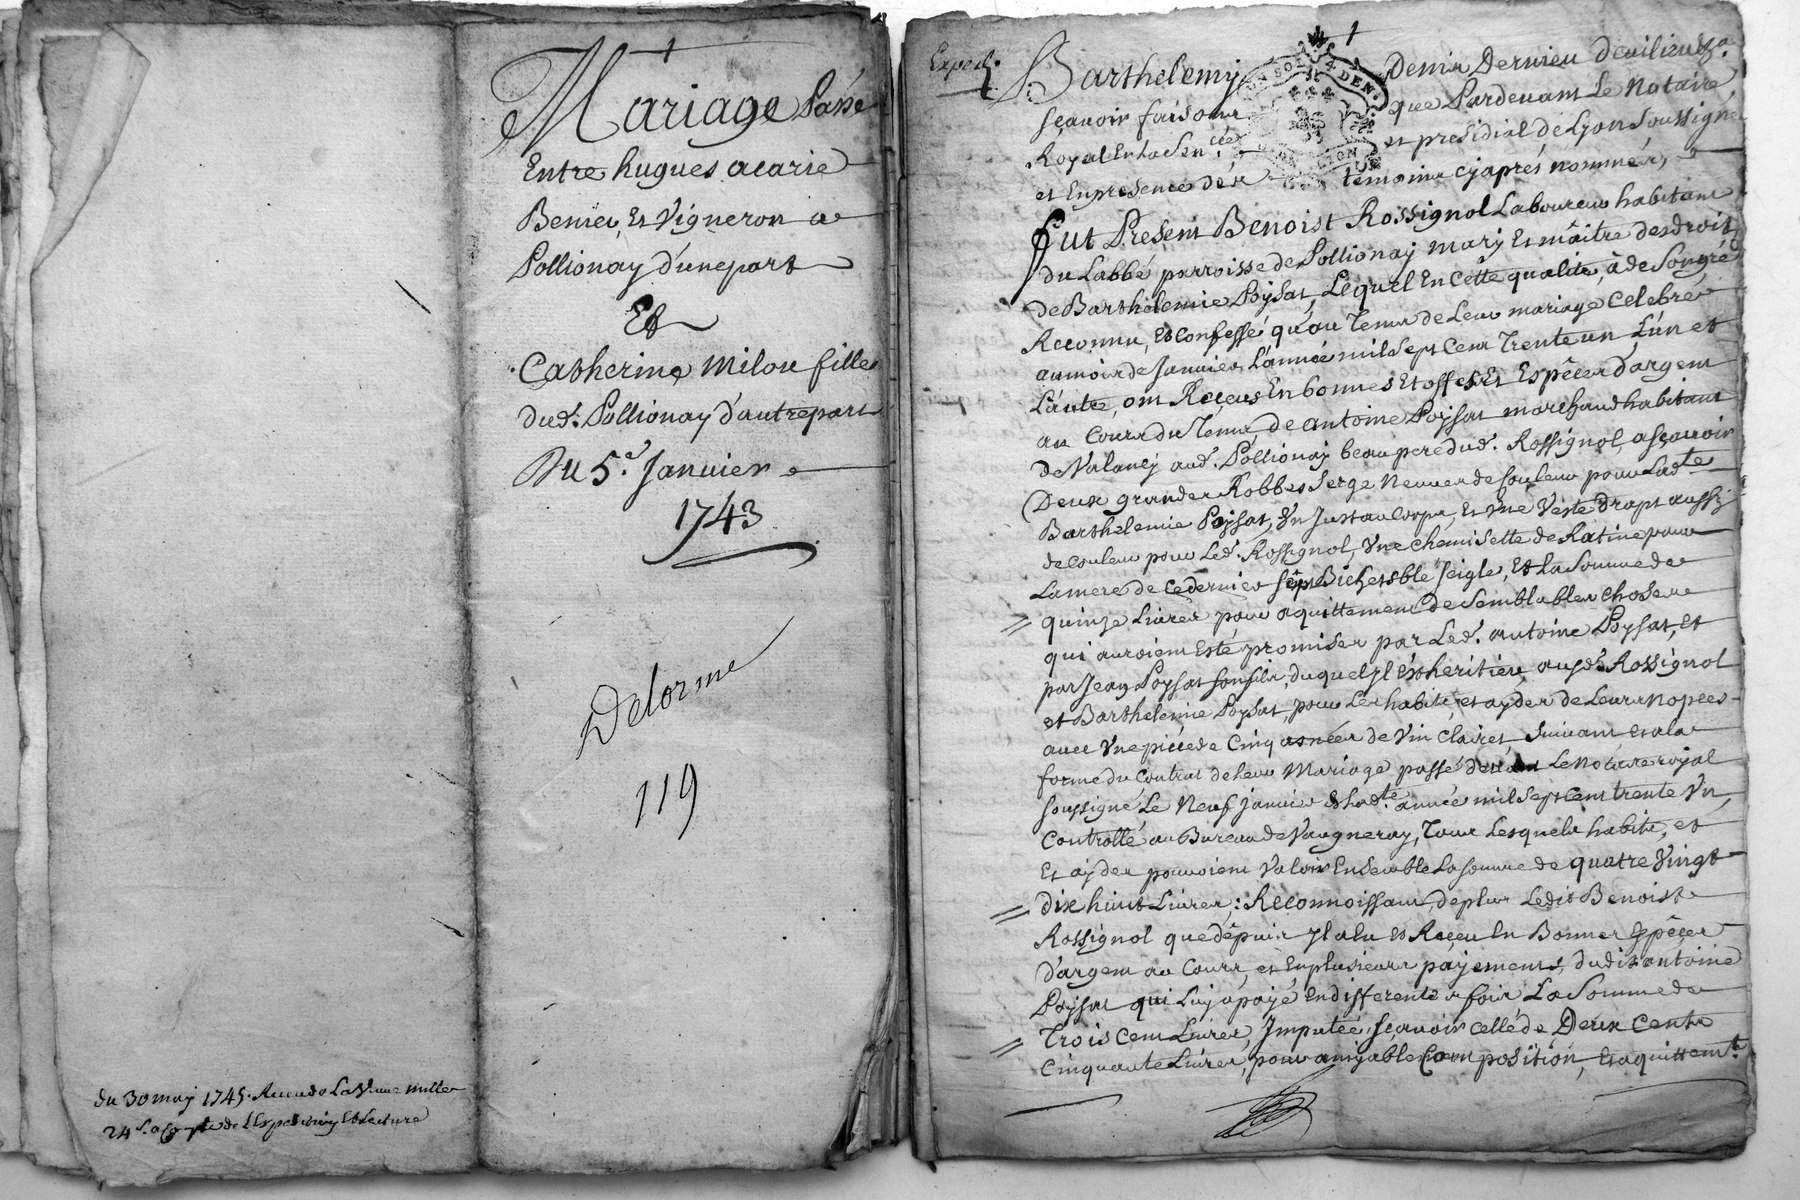 Mariage Passé
Entre hugues acarie
Benier, Et Vigneron a
Pollionay d'unepart
Et
Catherine milou fille
dud. Pollionay d'autrepart
Du 5.e Janvier
1743
Delorme
119
du 30 may 1745. Receu de La Veuve
24 s. a Compte de L'Expedition Et Lecture
Exped.
Barthelemy Denis Dervieu devilieu &c.
sçavoir faisons que Pardevant Le Notaire
Royal En la Sen.cée et presidial de Lyon Soussigné
et En presence des temoins cyaprés nommés,
SOLS 4 DEN.
LION
fut Present Benoist Rossignol Laboureur habitant
du Labbé parroisse de Pollionay mary Et maitre des droits
de Barthelemie Poysat, Lequel En Cette qualité, a de Songré
Reconnu, Et Confessé qu'au Tems de Leur mariage Celebré
au mois de Janvier L'année mil Sept Cent Trente un L'un et
L'autre, ont Reçeus En bonnes Et Espêces d'argent
au Cours du Tems de antoine Poysat marchand habitant
de Valancy aud. Pollionay beau pere dud. Rossignol, a sçavoir
Deux grandes Robbes Serge Neuves de Couleur pour Lad.te
Barthelemie Poysat, Un Justaucorps, Et Une Veste drapt aussy
de Couleur pour Led. Rossignol, Une Chemisette de Ratine pour
La mere de Ce dernier Sept Bichets blé Seigle, Et La Somme de
quinze Livres pour aquittement de Semblables Choses
qui auroient Esté promises par Led. antoine Poysat, et
par Jean Poysat son fils, duquel Jl Est heritier, ausd. Rossignol
et Barthelemie Poysat, pour Les habits, et ayder de Leurs Nopces
avec Une piéce de Cinq asnées de Vin Clairet Suivant et a la
forme du Contrat de Leur Mariage passé devant Le Notaire royal
soussigné Le Neuf Janvier de Lad.te année mil Sept Cent trente Un,
Controllé au Bureau de Vaugneray, Tous Lesquels habits, et
Et ayder pouvoient Valoir Ensemble La Somme de quatre Vingt
dix huit Livres; Reconnoissant, de plus Ledit Benoist
Rossignol que depuis Jl a Eu Et Reçeu En Bonnes Espêces
d'argent au Cours, et En plusieurs payements, dudit antoine
Poysat qui Luy a payé En differentes fois La Somme de
Trois Cent Livres, Imputée, sçavoir Cellé de Deux Cents
Cinquante Livres, pour amyable Composition, Et aquittem.t